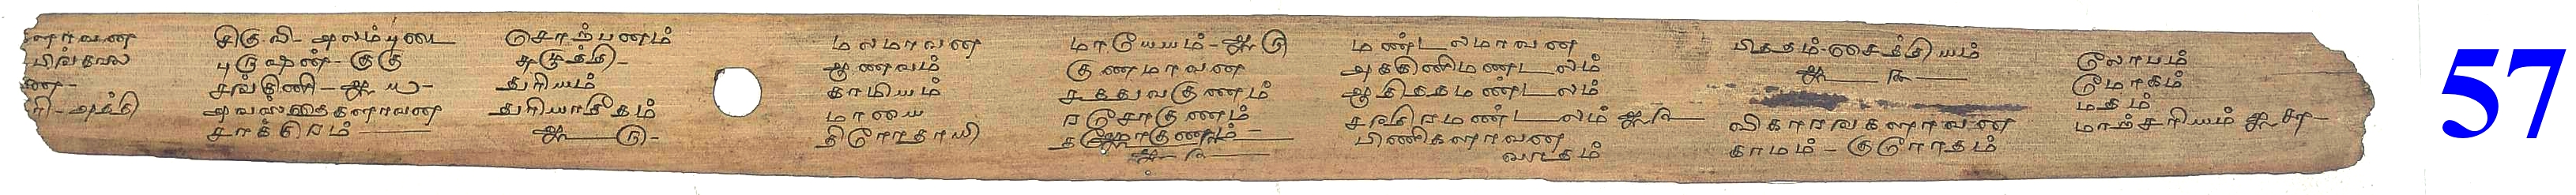 ளாவன
பிங்கலை
சிகுவை - அலம்புடை
புருஷன் - குகு
சங்கினி - ஆ
அவஸ்தைகளாவன
சாக்கிரம்
சொற்பனம்
சுழுத்தி -
துரியம்
துரியாதீதம்
ஆ ௫ -
மலமாவன
ஆணவம்
காமியம்
மாயை
திரோதாயி
மாயேயம் - ஆ ௫
குணமாவன
சத்துவகுணம்
ரசோகுணம்
தமோகுணம் -
ஆ ௩
மண்டலமாவன
அக்கினிமண்டலம்
ஆதித்தமண்டலம்
சந்திரமண்டலம் ஆ ௩
பிணிகளாவன
வாதம்
பித்தம் - சைத்தியம்
ஆ ௩
விகாரங்களாவன
காமம் - குரோதம்
லோபம்
மோகம்
மதம்
மாற்சரியம் ஆ
57